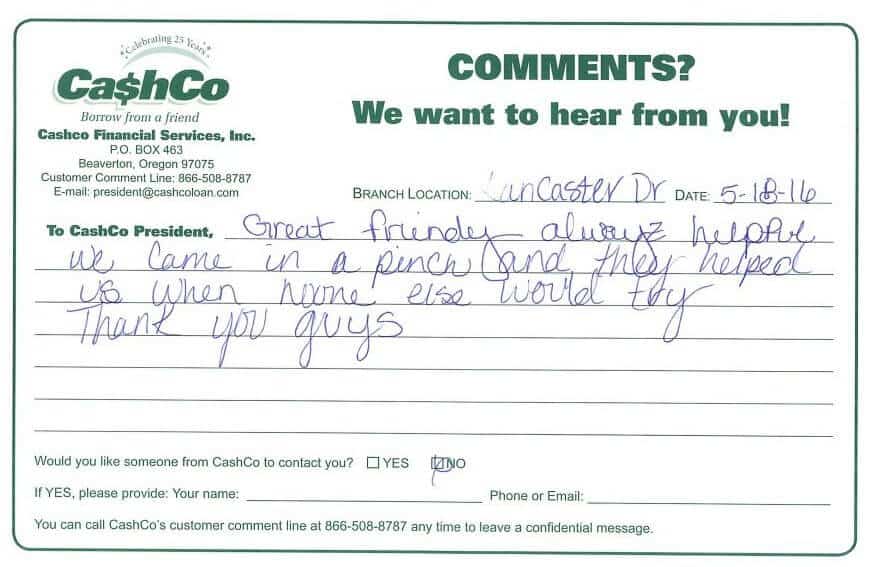 Celebrating 25 Years
Ca$hCo
Borrow from a friend
Cashco Financial Services, Inc.
P.O. BOX 463
Beaverton, Oregon 97075
Customer Comment Line: 866-508-8787
E-mail: president@cashcoloan.com
COMMENTS?
We want to hear from you!
BRANCH LOCATION: Lancaster Dr DATE: 5-18-16
To CashCo President, Great friendly always helpful
we came in a pinch and they helped
us when noone else would try
Thank you guys
Would you like someone from CashCo to contact you? YES NO
If YES, please provide: Your name: Phone or Email:
You can call CashCo's customer comment line at 866-508-8787 any time to leave a confidential message.